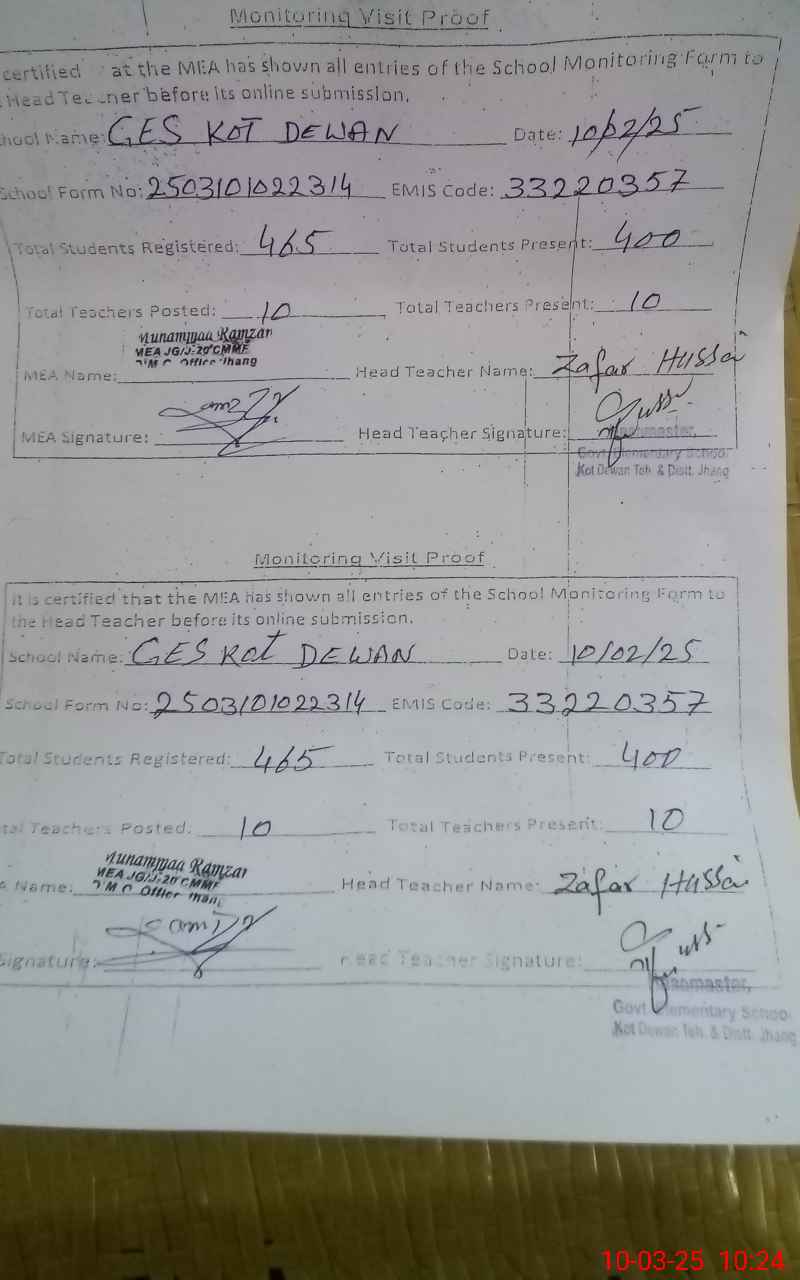 Monitoring Visit Proof
certified at the MEA has shown all entries of the School Monitoring Form to
Head Teacher before its online submission.
hool Name: GES KOT DEWAN Date: 10/02/25
School Form No: 2503101022314 EMIS Code: 33220357
Total Students Registered: 465 Total Students Present: 400
Total Teachers Posted: 10 Total Teachers Present: 10
Ramzan
MEA JG/J-20 CMMF
Office Jhang
MEA Name: Head Teacher Name: Zafar Hussai
MEA Signature: Head Teacher Signature:
Govt Elementary School
Kot Dewan Teh. & Distt. Jhang
Monitoring Visit Proof
It is certified that the MEA has shown all entries of the School Monitoring Form to
the Head Teacher before its online submission.
School Name: GES Kot DEWAN Date: 10/02/25
School Form No: 2503101022314 EMIS Code: 33220357
Total Students Registered: 465 Total Students Present: 400
tal Teachers Posted: 10 Total Teachers Present: 10
Ramzan
MEA JG/J-20 CMMF
Office
Name: Head Teacher Name: Zafar Hussai
Signature: Head Teacher Signature:
Govt Elementary School
Kot Dewan Teh. & Distt. Jhang
10-03-25 10:24